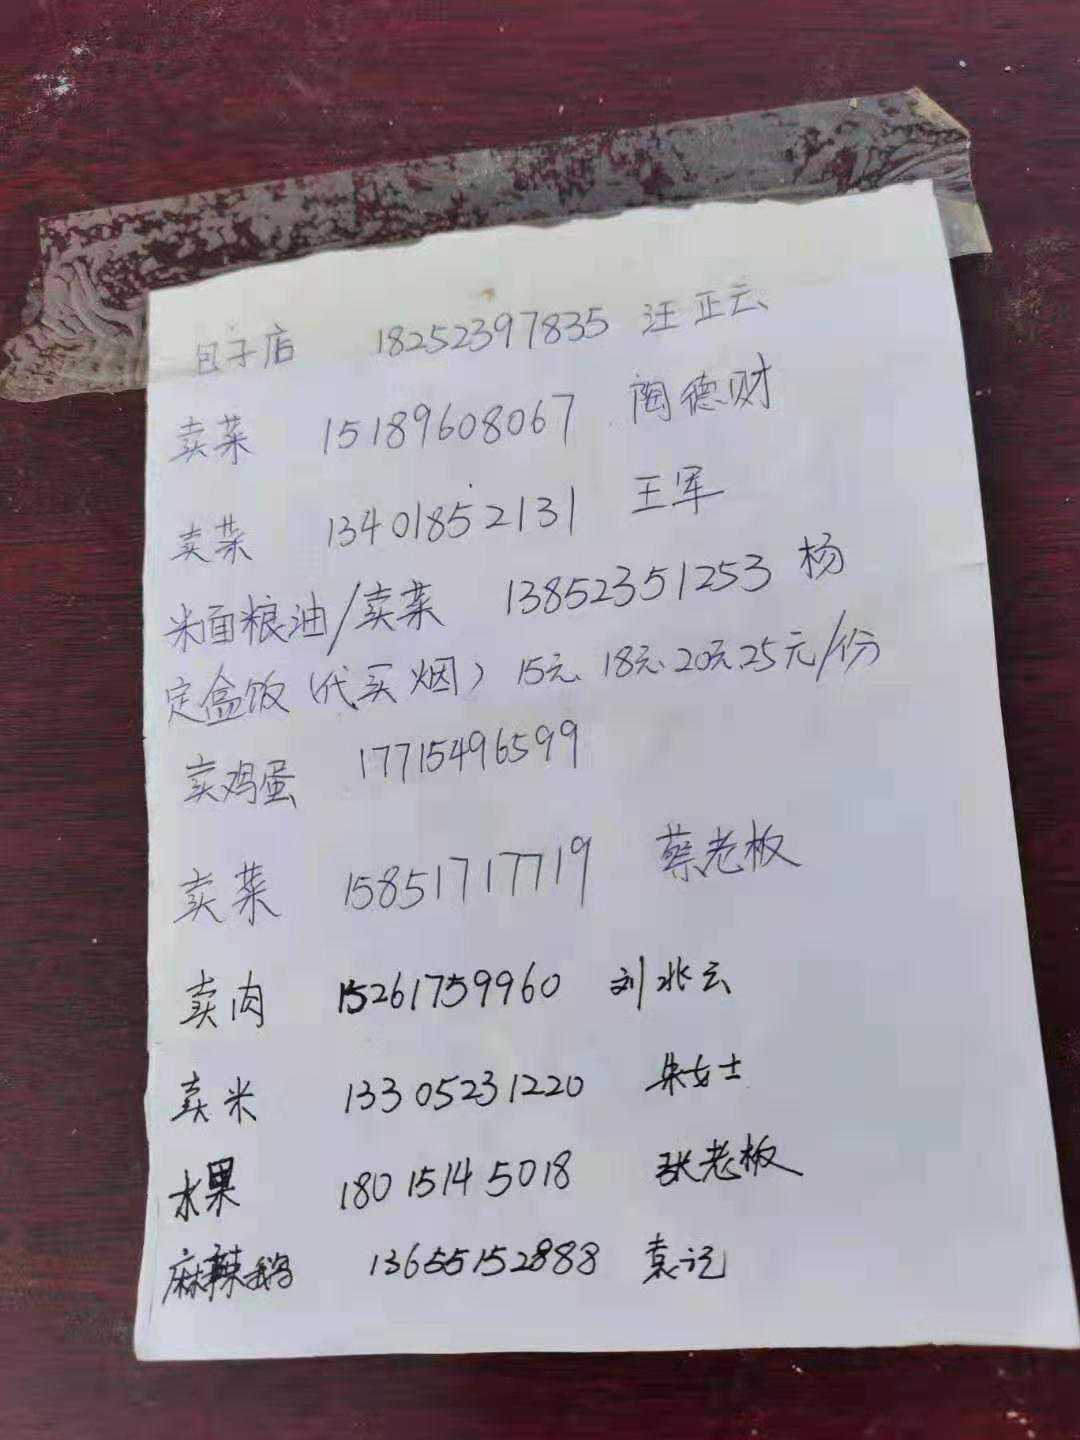 包子店 18252397835 汪正云
卖菜 15189608067 陶德财
卖菜 13401852131 王军
米面粮油/卖菜 13852351253 杨
定盒饭(代买烟) 15元、18元、20元25元/份
卖鸡蛋 17715496599
卖菜 15851717719 蔡老板
卖肉 15261759960 刘兆云
卖米 13305231220 朱女士
水果 18015145018 张老板
麻辣鹅 13655152888 袁记